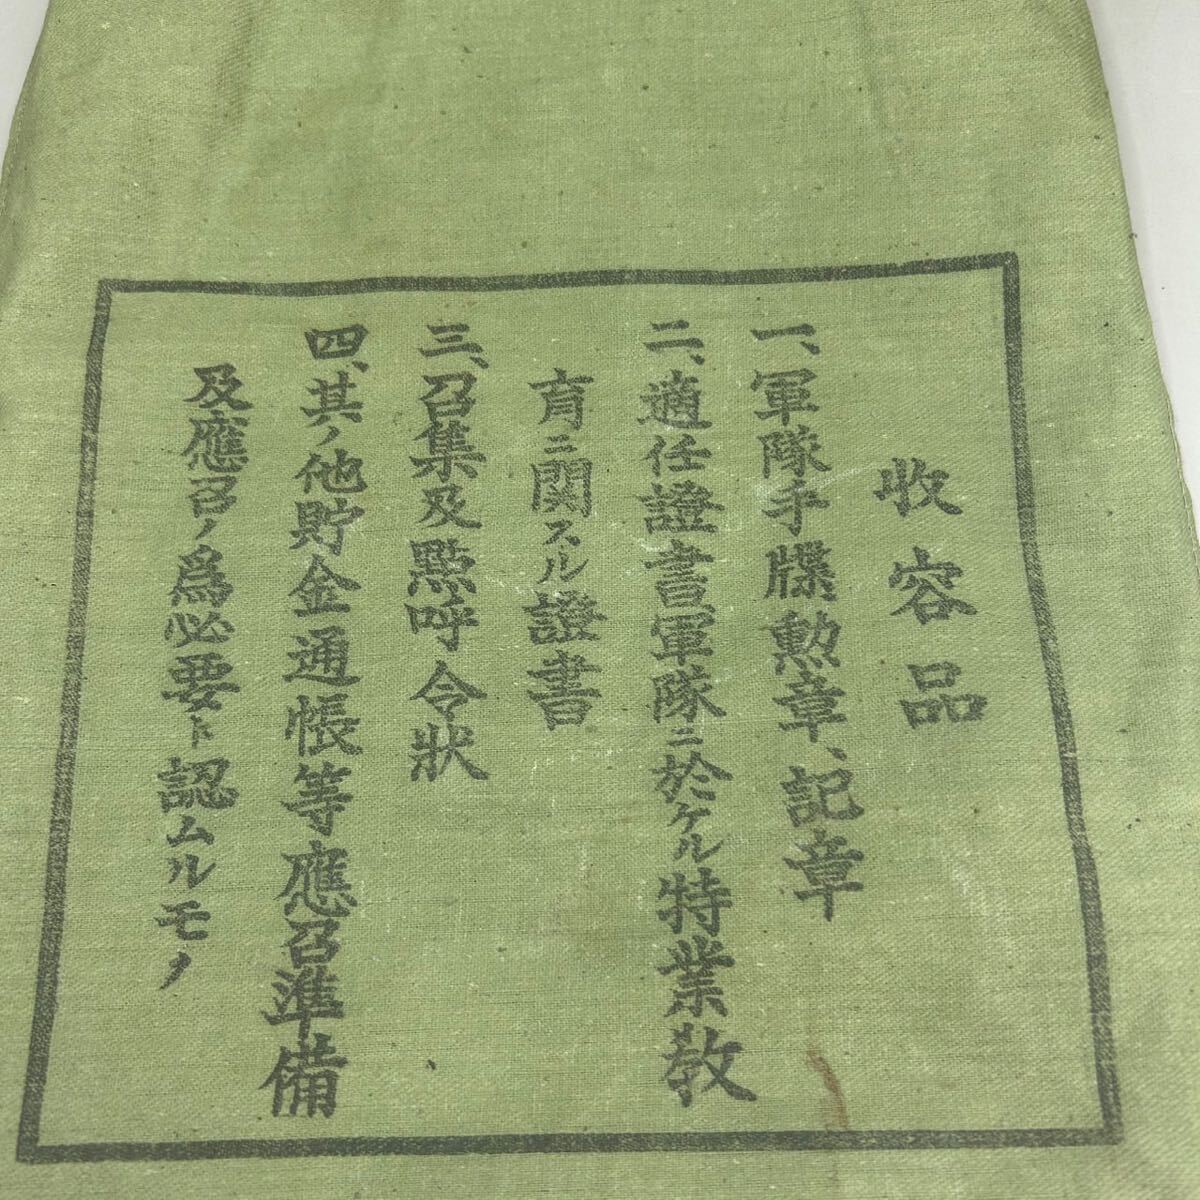 收容品
一、軍隊手牒、勲章、記章
二、適任證書軍隊ニ於ケル特業教
育ニ関スル證書
三、召集及點呼令狀
四、其ノ他貯金通帳等應召準備
及應召ノ爲必要ト認ムルモノ